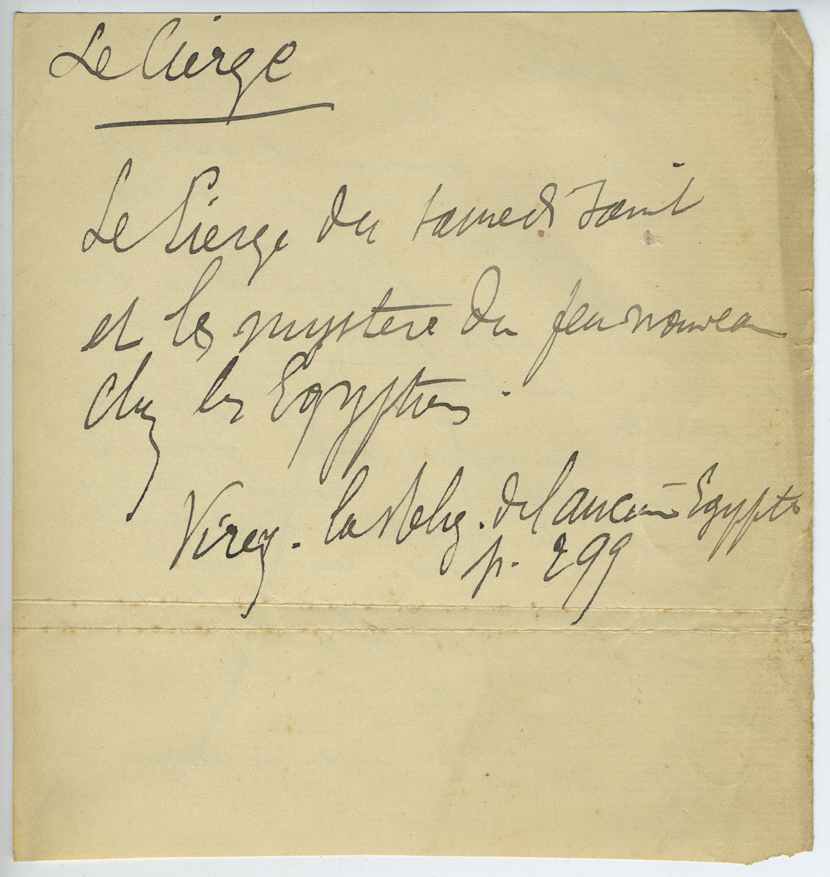 Le Cierge
Le Cierge du samedi saint
et les mystere du feu nouveau
chez les Egyptiens.
Virey. la Relig. de l'ancienne Egypte
p. 299